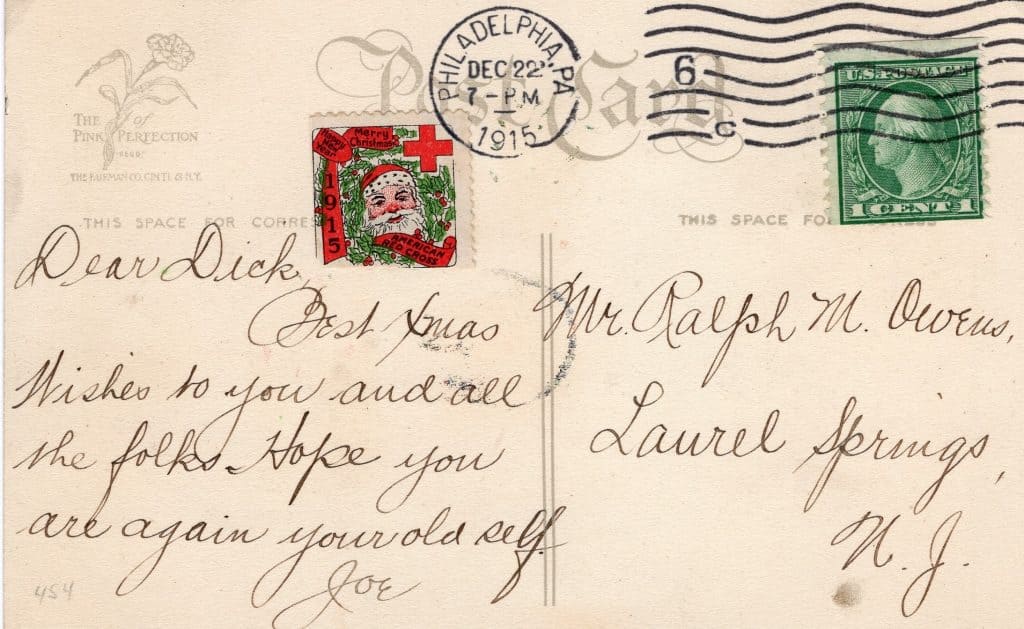 Post Card
PHILADELPHIA, PA
DEC 22
7-PM
1915
6
C
U.S. POSTAGE
1 CENT 1
THE of
PINK PERFECTION
THE FAIRMAN CO. CIN'TI. & N.Y.
Happy New Year
Merry Christmas
1915
AMERICAN
RED CROSS
THIS SPACE FOR
THIS SPACE
Dear Dick,
Best Xmas
Wishes to you and all
the folks. Hope you
are again your old self.
Joe
Mr. Ralph M. Owens,
Laurel Springs,
N. J.
454